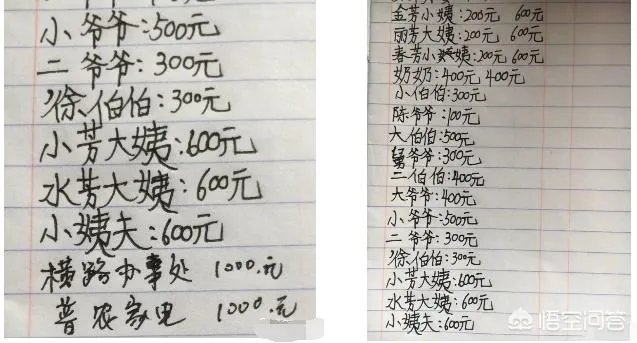 小爷爷:500元
二爷爷:300元
徐伯伯:300元
小芳大姨:600元
水芳大姨:600元
小姨夫:600元
横路办事处 1000.元
普农家电 1000.元
金芳小姨:200元 600元
丽芳大姨:200元 600元
春芳小姨:200元 600元
奶奶:400元 400元
小伯伯:300元
陈爷爷:100元
大伯伯:500元
舅爷爷:300元
二伯伯:400元
大爷爷:400元
小爷爷:500元
二爷爷:300元
徐伯伯:300元
小芳大姨:600元
水芳大姨:600元
小姨夫:600元
悟空问答